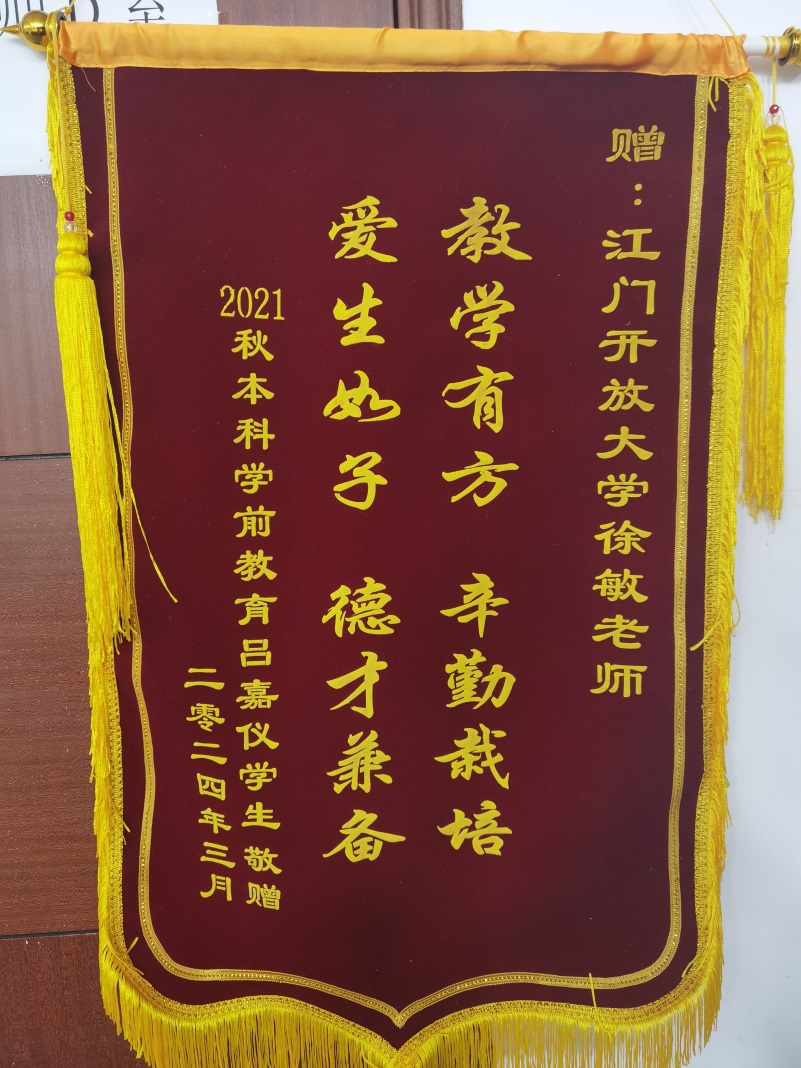 赠：江门开放大学徐敏老师
教学有方 辛勤栽培
爱生如子 德才兼备
2021秋本科学前教育吕嘉仪学生 敬赠
二零二四年三月